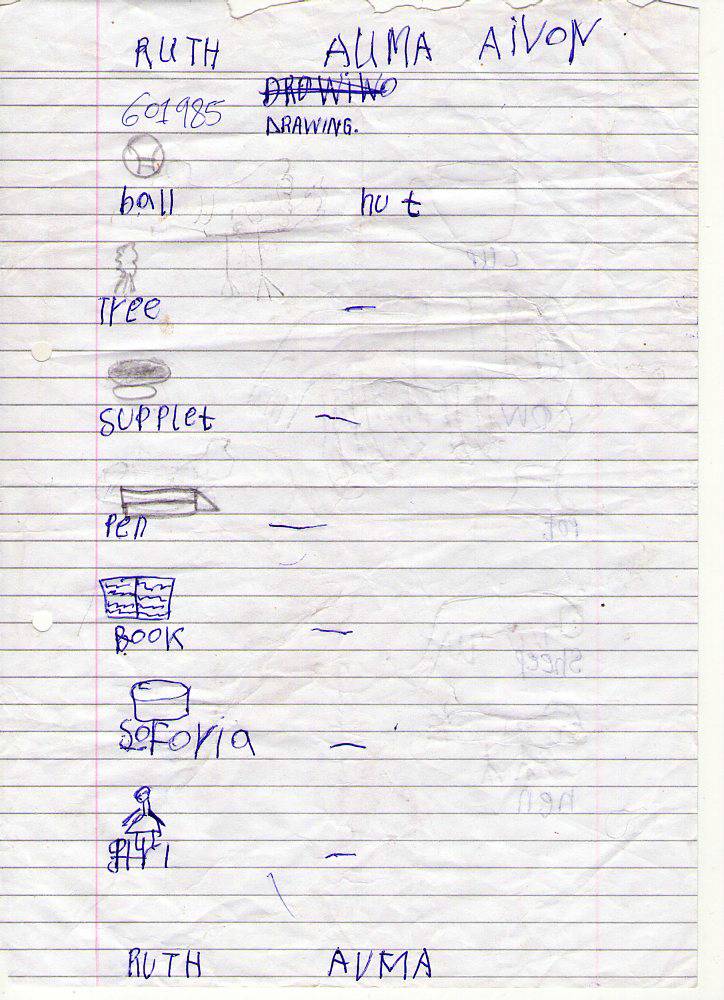 RUTH AUMA AIVON
601985 DROWING
DRAWING.
ball hut
Tree —
SUPPLet —
Pen —
BOOK —
SoForia —
RUTH AUMA